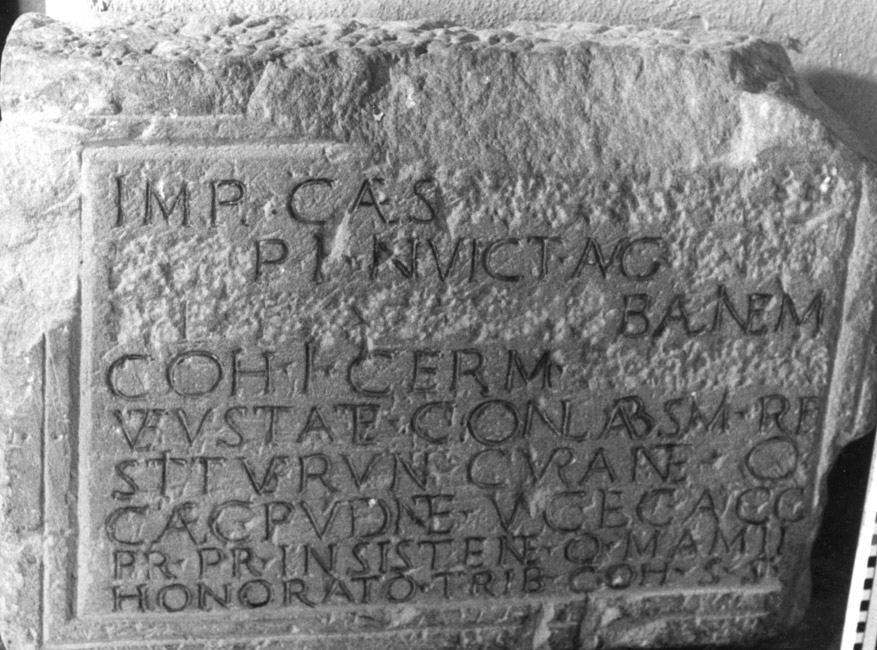 IMP · CAES
P F · INVICT · AVG
BALNEVM
COH · I · GERM
VETVSTATE · CONLABSVM · RE
STITVERVNT · CVRANTE · Q
CAEC · PVDENTE · V · C · LEG · AVGG
PR · PR · INSISTENTE · Q · MAMIL
HONORATO · TRIB · COH · S · S ·